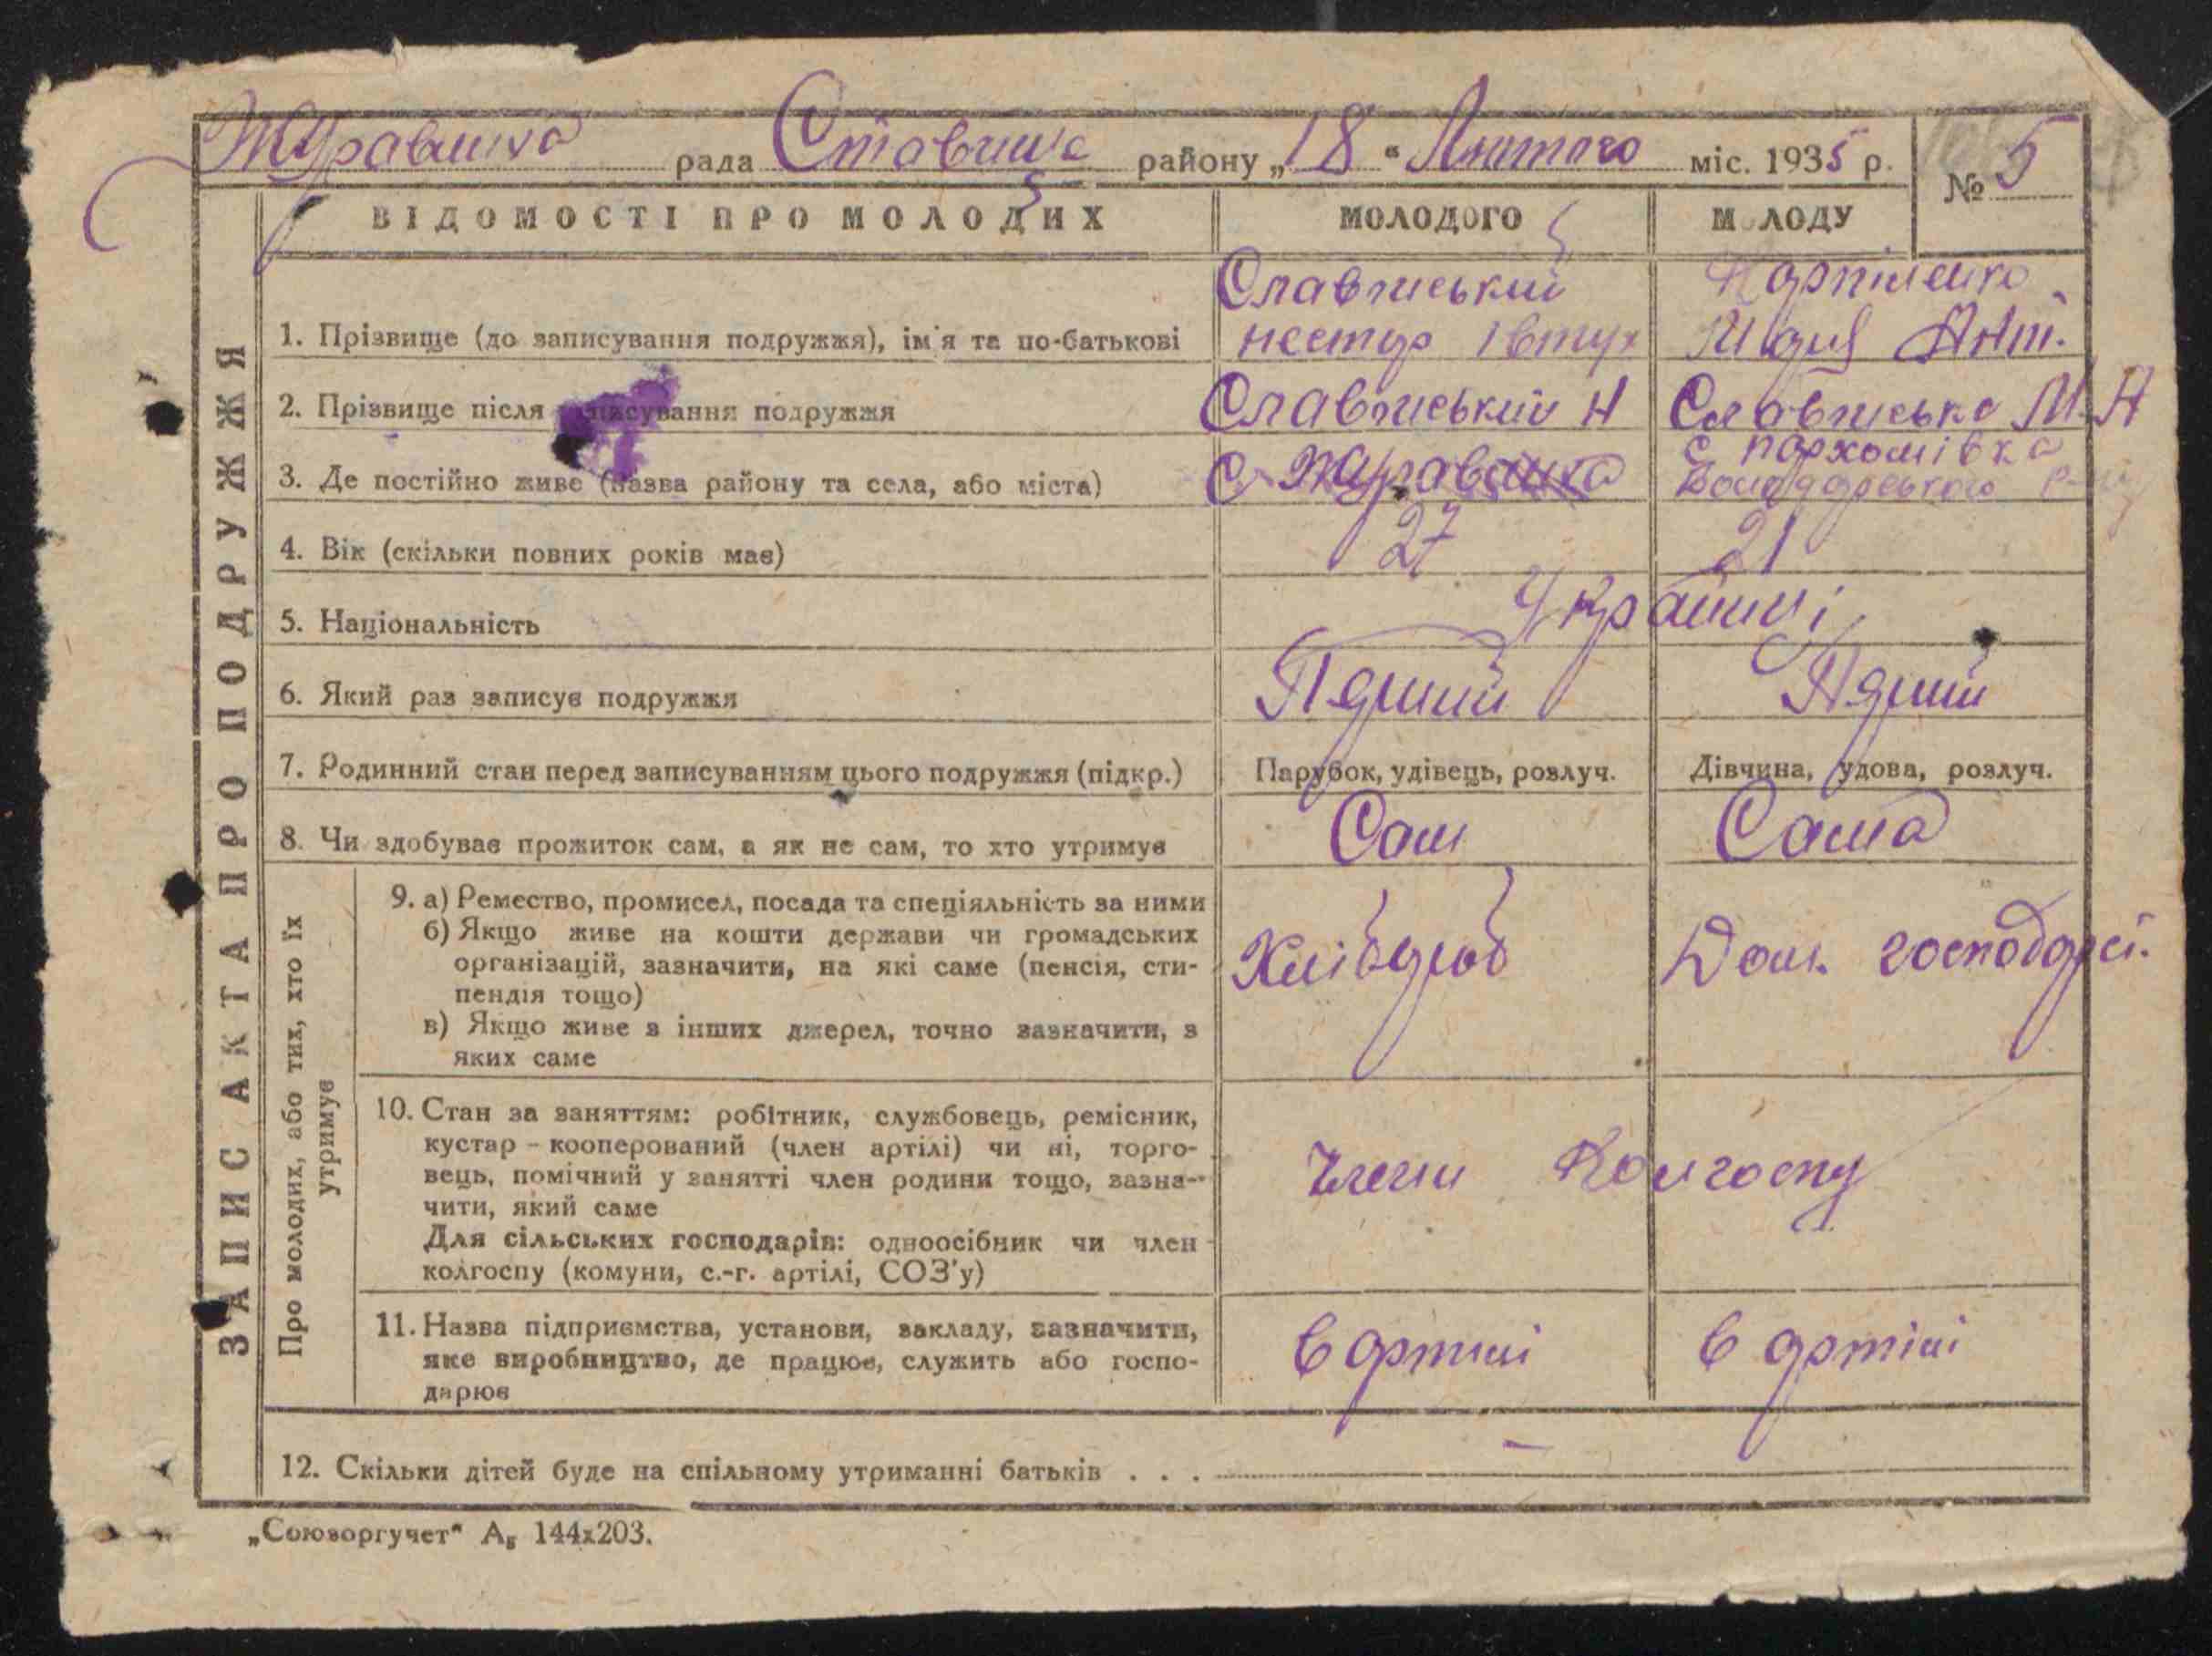 Журавлиха рада Ставище району „18“ Лютого міс. 1935 р.
№ 5
ВІДОМОСТІ ПРО МОЛОДИХ
МОЛОДОГО
МОЛОДУ
ЗАПИС АКТА ПРО ПОДРУЖЖЯ
1. Прізвище (до записування подружжя), ім'я та по-батькові
Славінський
нестур Івтух
Марія Ант.
2. Прізвище після записування подружжя
Славінський Н
Славінська М.А
3. Де постійно живе (назва району та села, або міста)
С. Журавлиха
с пархомівка
Володарського р-ну
4. Вік (скільки повних років має)
27
21
5. Національність
Україниі
6. Який раз записує подружжя
Пярший
Пярший
7. Родинний стан перед записуванням цього подружжя (підкр.)
Парубок, удівець, розлуч.
Дівчина, удова, розлуч.
8. Чи здобуває прожиток сам, а як не сам, то хто утримує
Сам
Сама
Про молодих, або тих, хто їх
утримує
9. а) Ремество, промисел, посада та спеціяльність за ними
б) Якщо живе на кошти держави чи громадських
організацій, зазначити, на які саме (пенсія, сти-
пендія тощо)
в) Якщо живе з інших джерел, точно зазначити, з
яких саме
Хлібароб
Дом. господарсі.
10. Стан за заняттям: робітник, службовець, ремісник,
кустар – кооперований (член артілі) чи ні, торго-
вець, помічний у занятті член родини тощо, зазна-
чити, який саме
Для сільських господарів: одноосібник чи член
колгоспу (комуни, с.-г. артілі, СОЗ'у)
Члени Колгоспу
11. Назва підприємства, установи, закладу, зазначити,
яке виробництво, де працює, служить або госпо-
дарює
в артілі
в артілі
12. Скільки дітей буде на спільному утриманні батьків . . .
–
„Союзоргучет“ А₅ 144х203.